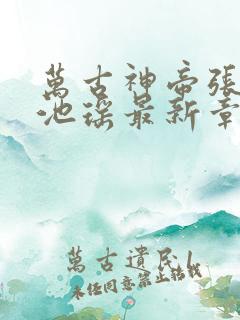 萬古神帝張
池瑤最新章
萬古遺民
未经同意禁止转载